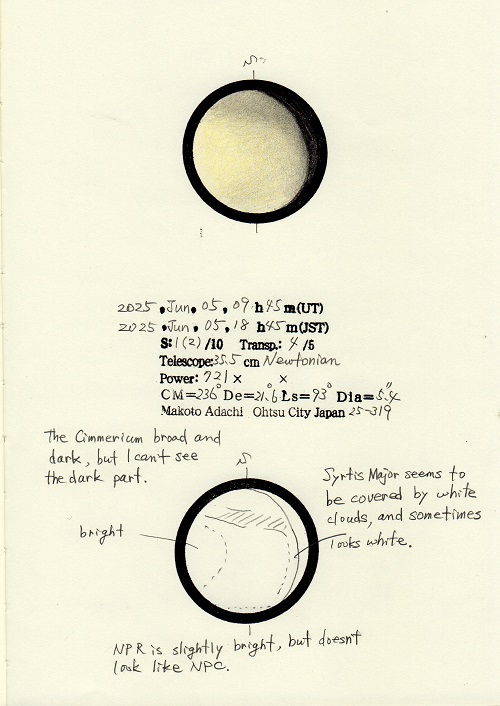 S
2025 Jun. 05, 09 h 45 m (UT)
2025 Jun. 05, 18 h 45 m (JST)
S: 1 (2) /10 Transp.: 4 /5
Telescope: 35.5 cm Newtonian
Power: 721 × ×
CM=236° De=21.6° Ls=93° Dia=5.4"
Makoto Adachi Ohtsu City Japan 25-319
The Cimmerium broad and
dark, but I can't see
the dark part.
S
Syrtis Major seems to
be covered by white
clouds, and sometimes
looks white.
bright
NPR is slightly bright, but doesn't
look like NPC.